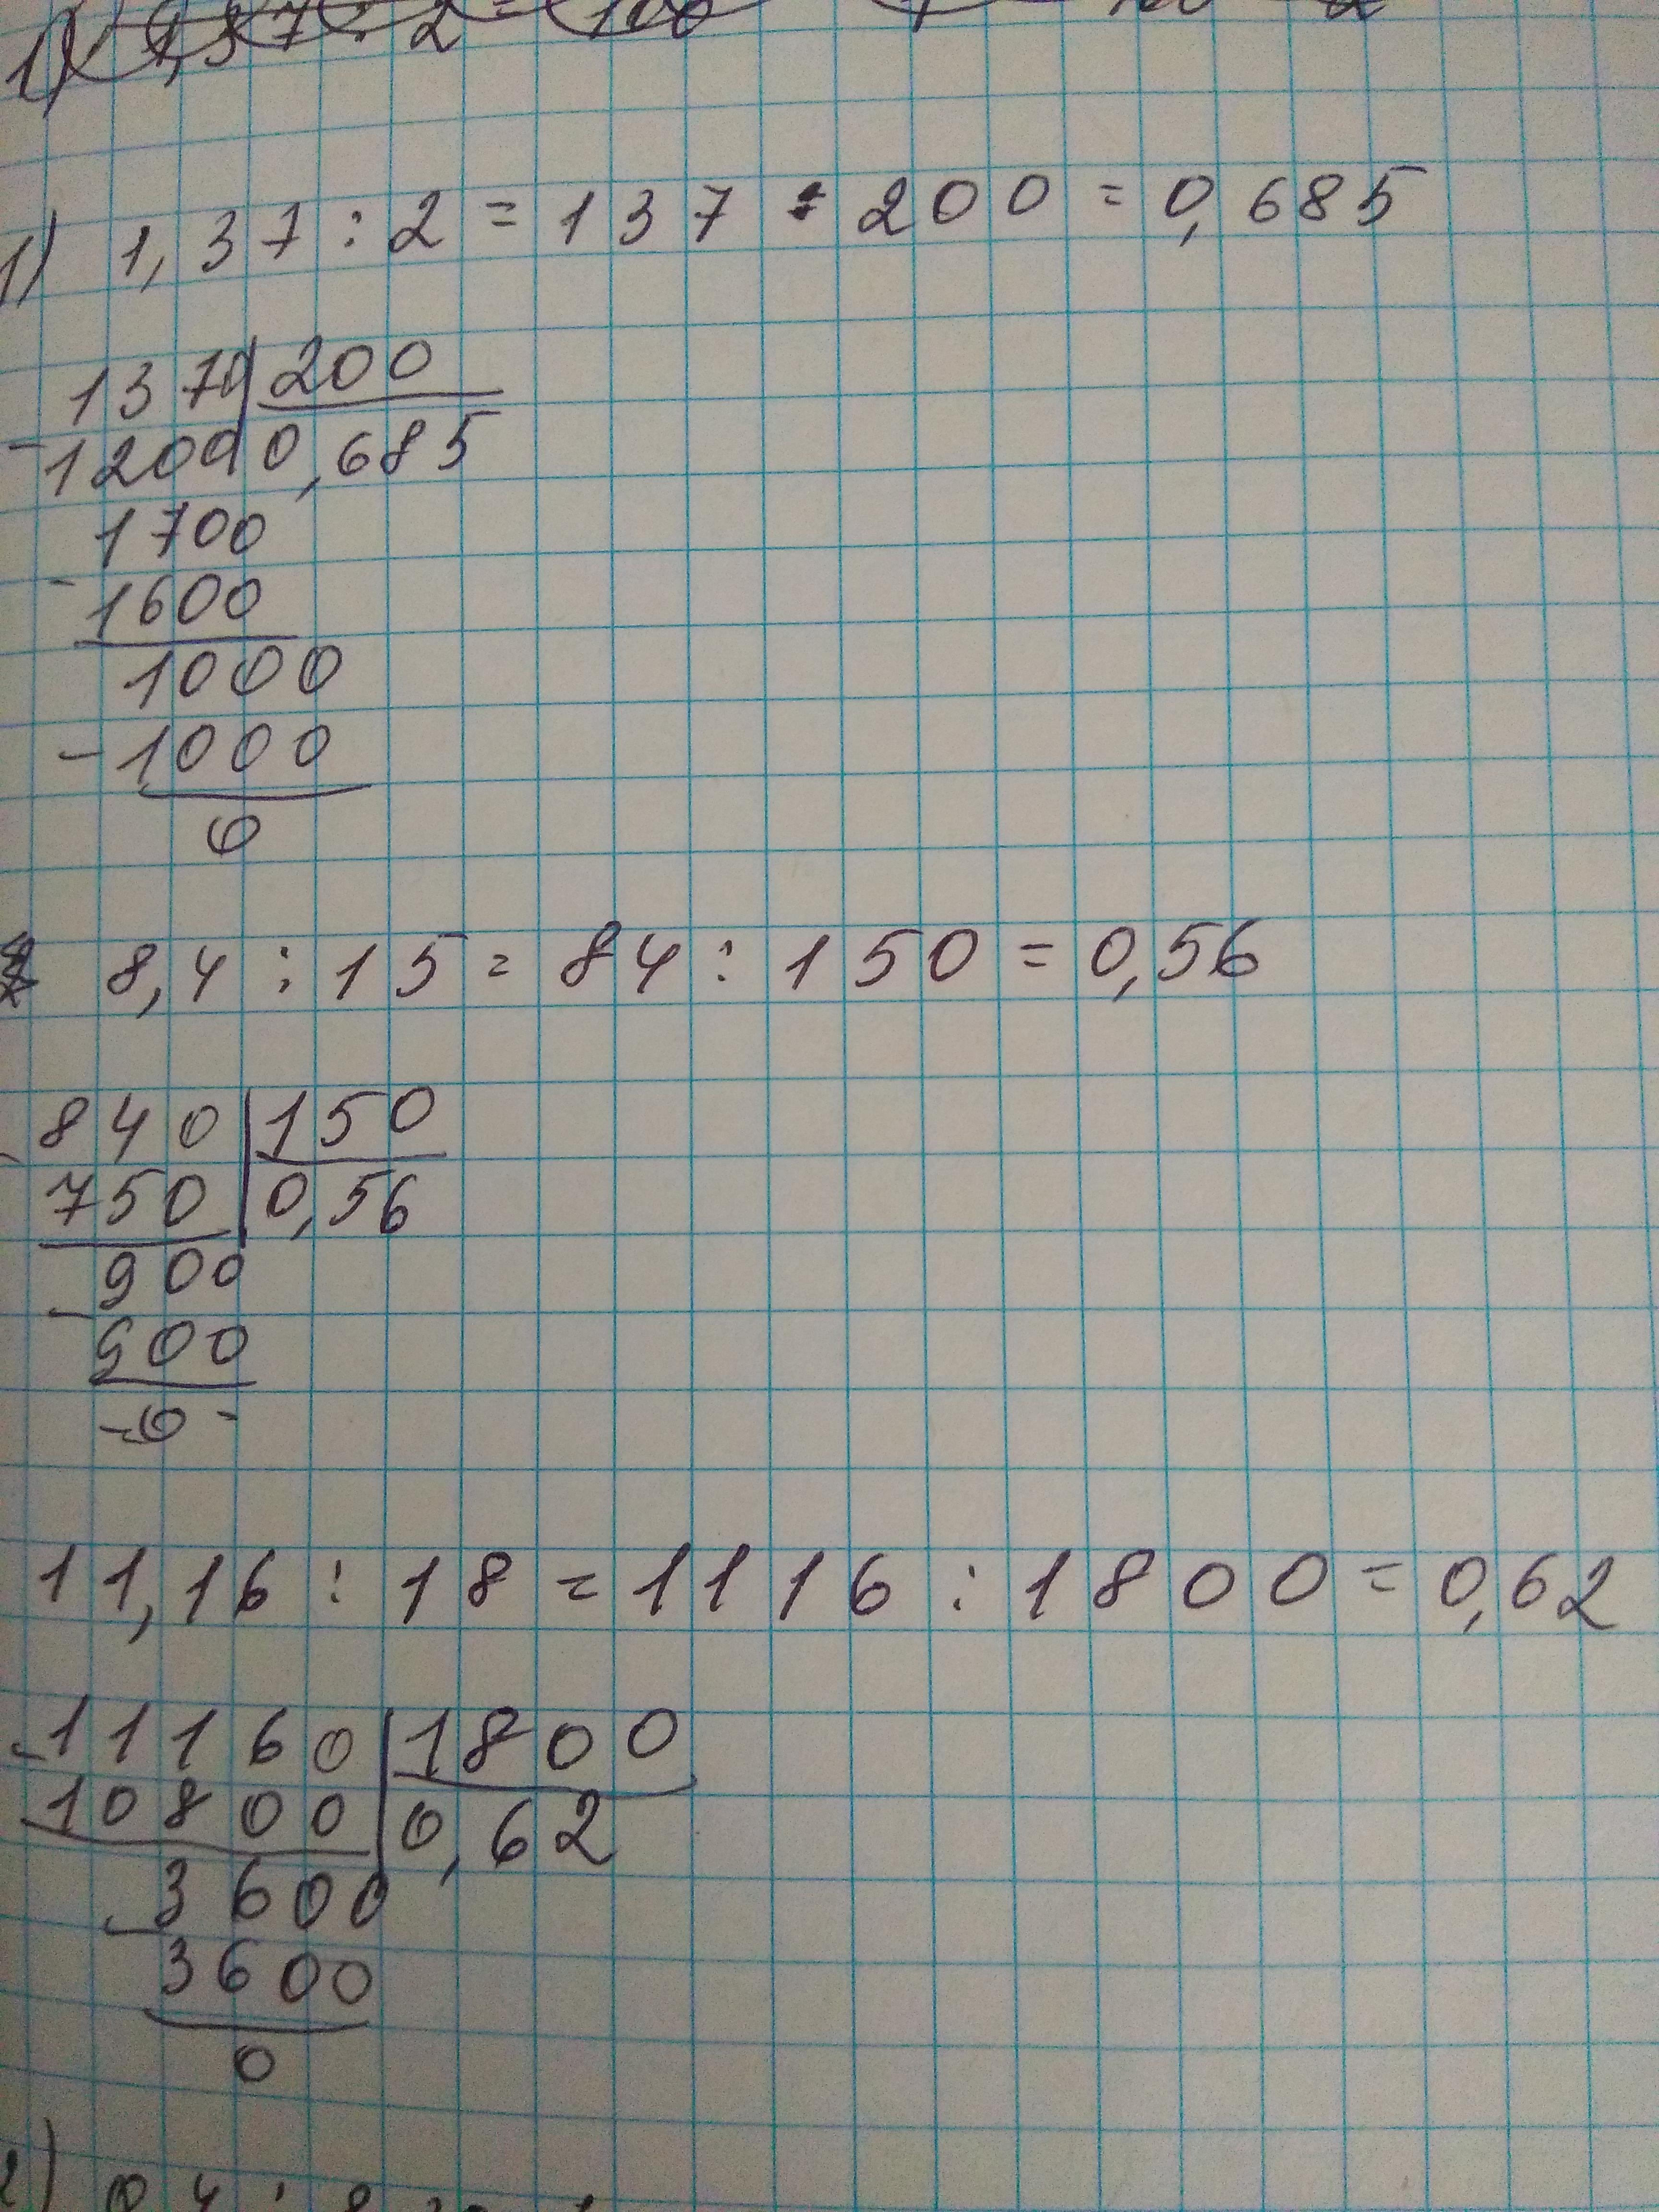 1) 1,37 : 2 = 100
1) 1,37 : 2 = 137 : 200 = 0,685
1370 | 200
- 1200 | 0,685
1700
- 1600
1000
- 1000
0
8,4 : 15 = 84 : 150 = 0,56
- 840 | 150
750 | 0,56
900
- 900
- 0 -
11,16 : 18 = 1116 : 1800 = 0,62
- 11160 | 1800
10800 | 0,62
- 3600
3600
0
2)